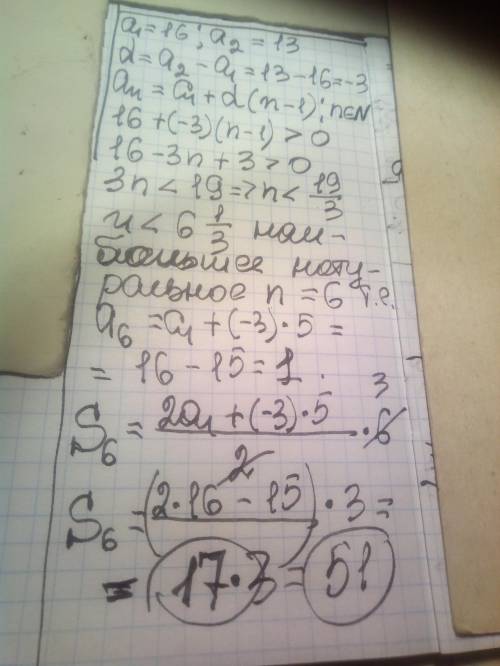 a₁=16; a₂=13
d=a₂-a₁=13-16=-3
aₙ=a₁+d(n-1); n∈N
16+(-3)(n-1)>0
16-3n+3>0
3n<19=>n<19/3
n<6 1/3 наи-
большее нату-
ральное n=6 т.е.
a₆=a₁+(-3)·5=
=16-15=1.
3
S₆=(2a₁+(-3)·5)/2·6
S₆=(2·16-15)·3=
=17·3=51